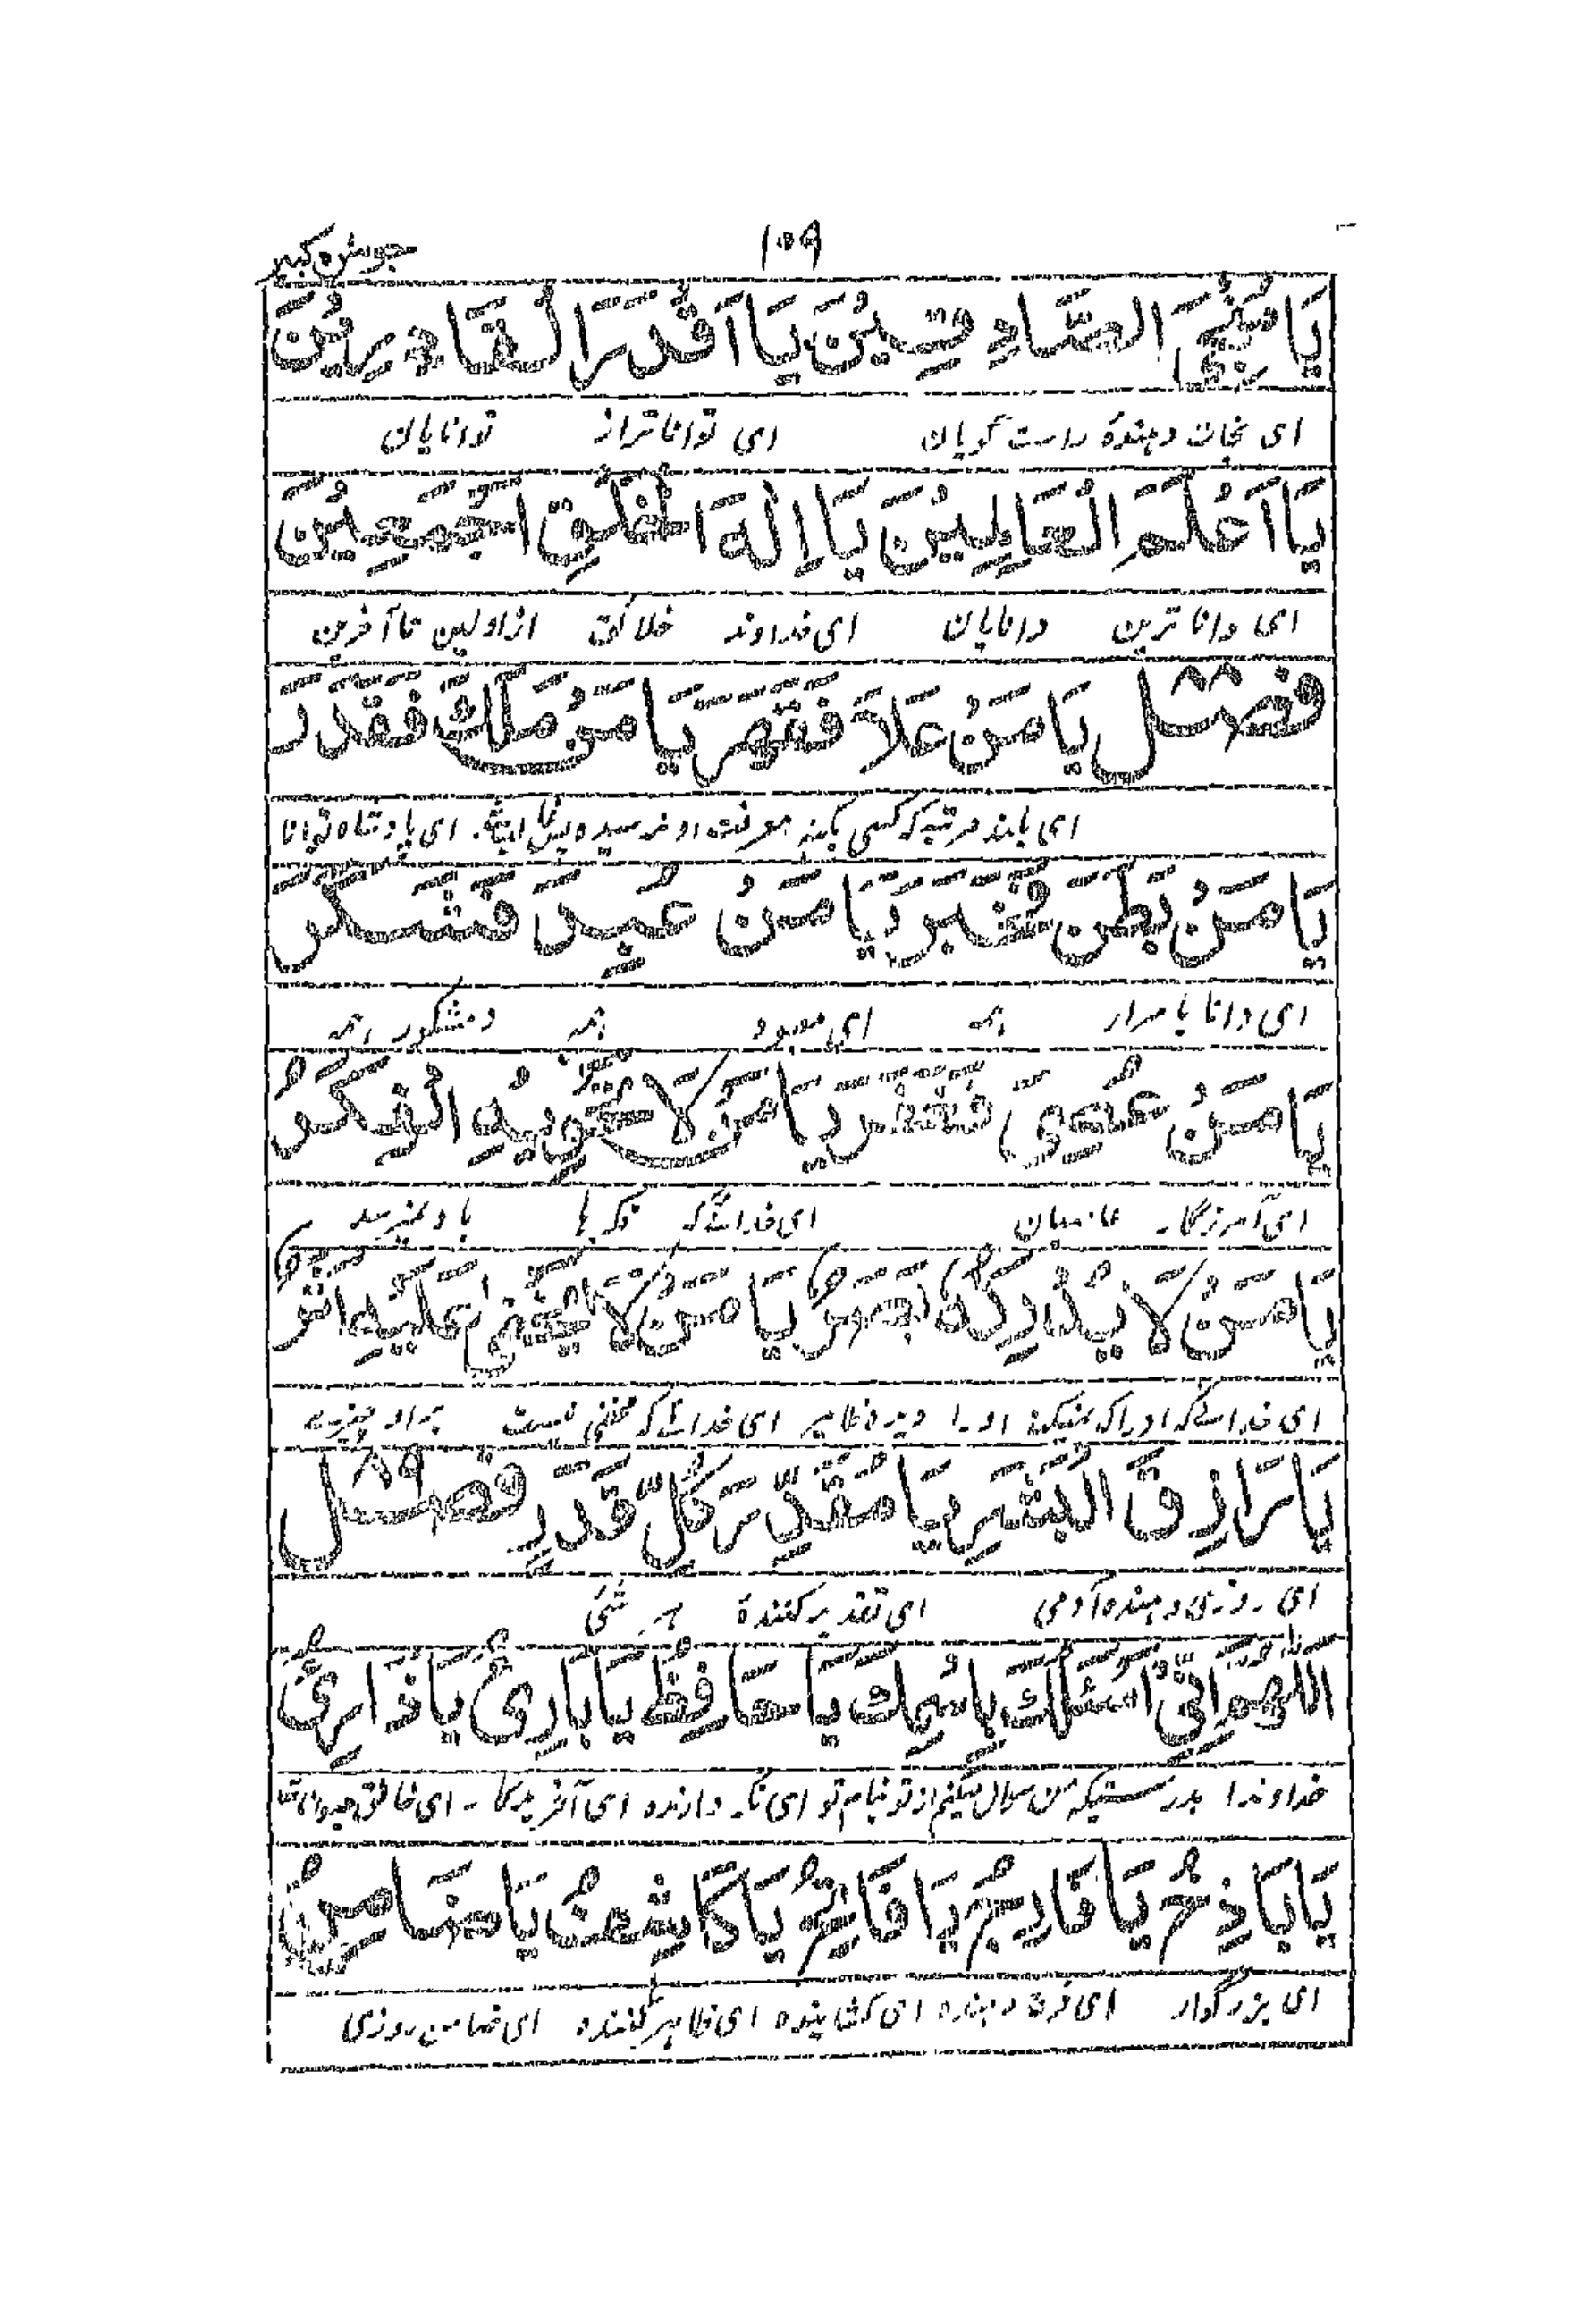 ۱۵۹
جوشن کبیر
يَا مُنْجِيَ الصَّادِقِيْنَ يَا اَقْدَرَ الْقَادِرِيْنَ
ای نجات دهندهٔ راست گویان ای تواناتر از توانایان
يَا اَعْلَمَ الْعَالِمِيْنَ يَا اِلٰهَ الْخَلْقِ اَجْمَعِيْنَ
ای دانا ترین دانایان ای خداوند خلائق از اولین تا آخرین
فصل ۸۸ يَا مَنْ عَلَا فَقَهَرَ يَا مَنْ مَلَكَ فَقَدَرَ
ای بلند مرتبه که کسی بکنه معرفت او نرسیده ای پادشاه توانا
يَا مَنْ بَطَنَ فَخَبَرَ يَا مَنْ عُبِدَ فَشَكَرَ
ای دانا باسرار همه ای معبود همه و مشکور همه
يَا مَنْ عُصِيَ فَغَفَرَ يَا مَنْ لَا تَحْوِيْهِ الْفِكَرُ
ای آمرزگار عاصیان ای خدائے که فکر ها باو نمیرسد
يَا مَنْ لَا يُدْرِكُهُ بَصَرٌ يَا مَنْ لَا يَخْفٰى عَلَيْهِ اَثَرٌ
ای خدائے که ادراک نمیکند او را دیده ظاهر ای خدائے که مخفی نیست بر او چیزے
يَا رَازِقَ الْبَشَرِ يَا مُقَدِّرَ كُلِّ قَدَرٍ فصل ۸۹
ای روزی دهنده آدمی ای تقدیر کنندهٔ هر شئ
اَللّٰهُمَّ اِنِّيْ اَسْئَلُكَ بِاسْمِكَ يَا حَافِظُ يَا بَارِئُ يَا ذَارِئُ
خداوندا بدرستیکه من سوال میکنم از تو بنام تو ای نگه دارنده ای آفریدگار ای خالق
يَا بَاذِخُ يَا فَارِجُ يَا فَاتِحُ يَا كَاشِفُ يَا ضَامِنُ
ای بزرگوار ای فرج دهنده ای کشاینده ای ظاهر کننده ای ضامن روزی